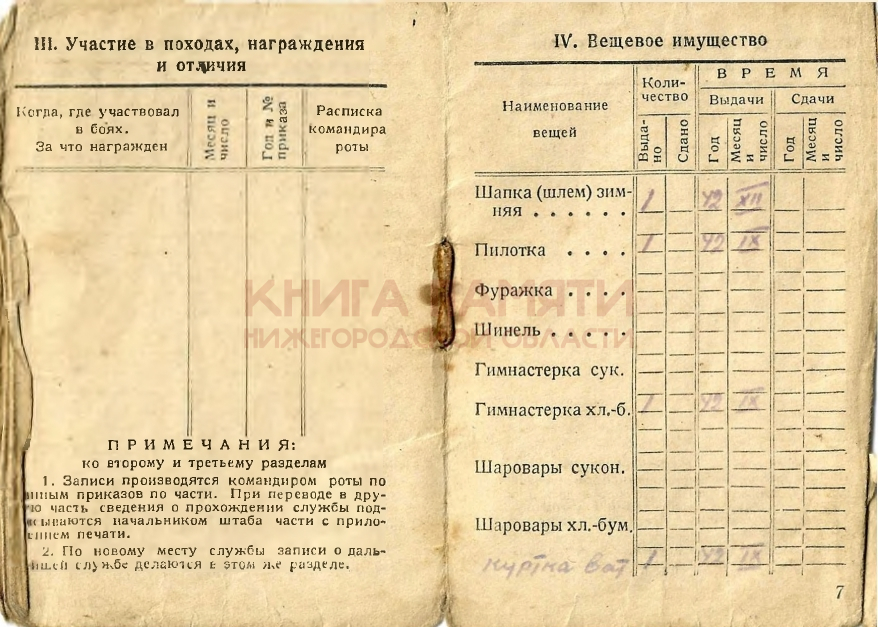 III. Участие в походах, награждения
и отличия
Когда, где участвовал
в боях.
За что награжден
Месяц и
число
Год и №
приказа
Расписка
командира
роты
ПРИМЕЧАНИЯ:
ко второму и третьему разделам
1. Записи производятся командиром роты по
приказов по части. При переводе в дру-
часть сведения о прохождении службы под-
начальником штаба части с прило-
печати.
2. По новому месту службы записи о даль-
службе делаются в этом же разделе.
IV. Вещевое имущество
Наименование
вещей
Коли-
чество
ВРЕМЯ
Выдачи
Сдачи
Выда-
но
Сдано
Год
Месяц
и
число
Год
Месяц
и
число
Шапка (шлем) зим-
няя . . . . . . 1 42 XII
Пилотка . . . . 1 42 IX
Фуражка . . . .
Шинель . . . . .
Гимнастерка сук.
Гимнастерка хл.-б. 1 42 IX
Шаровары сукон.
Шаровары хл.-бум.
куртка ват 1 42 IX
7
КНИГА ПАМЯТИ
НИЖЕГОРОДСКОЙ ОБЛАСТИ